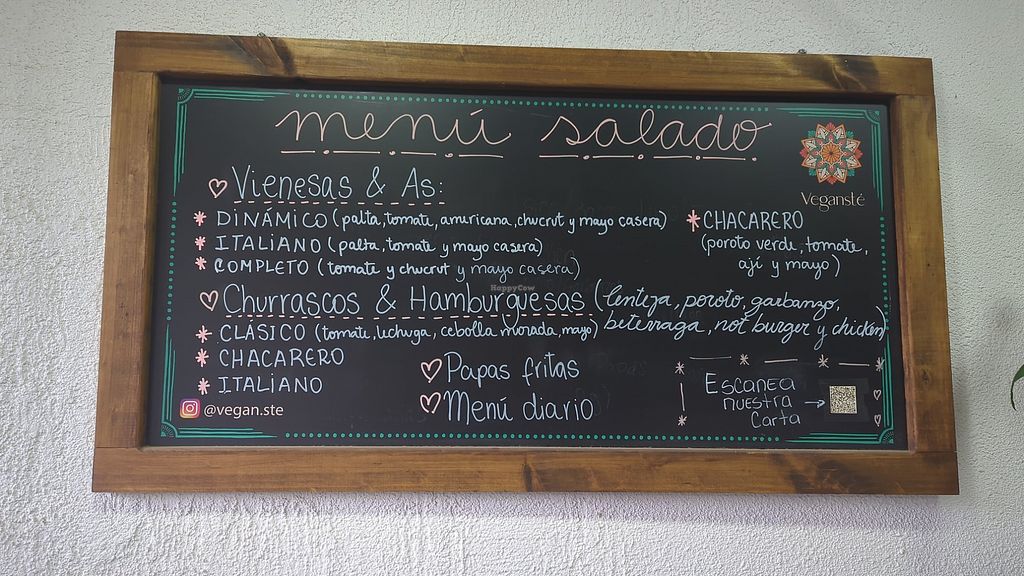 menú salado
Vegansté
Vienesas & As:
* DINÁMICO (palta, tomate, americana, chucrut y mayo casera)
* ITALIANO (palta, tomate y mayo casera)
* COMPLETO (tomate y chucrut y mayo casera)
* CHACARERO
(poroto verde, tomate,
ají y mayo)
HappyCow
Churrascos & Hamburguesas (lenteja, poroto, garbanzo,
beterraga, not burger y chicken)
* CLÁSICO (tomate, lechuga, cebolla morada, mayo)
* CHACARERO
* ITALIANO
Papas fritas
Menú diario
Escanea
nuestra
Carta
@vegan.ste